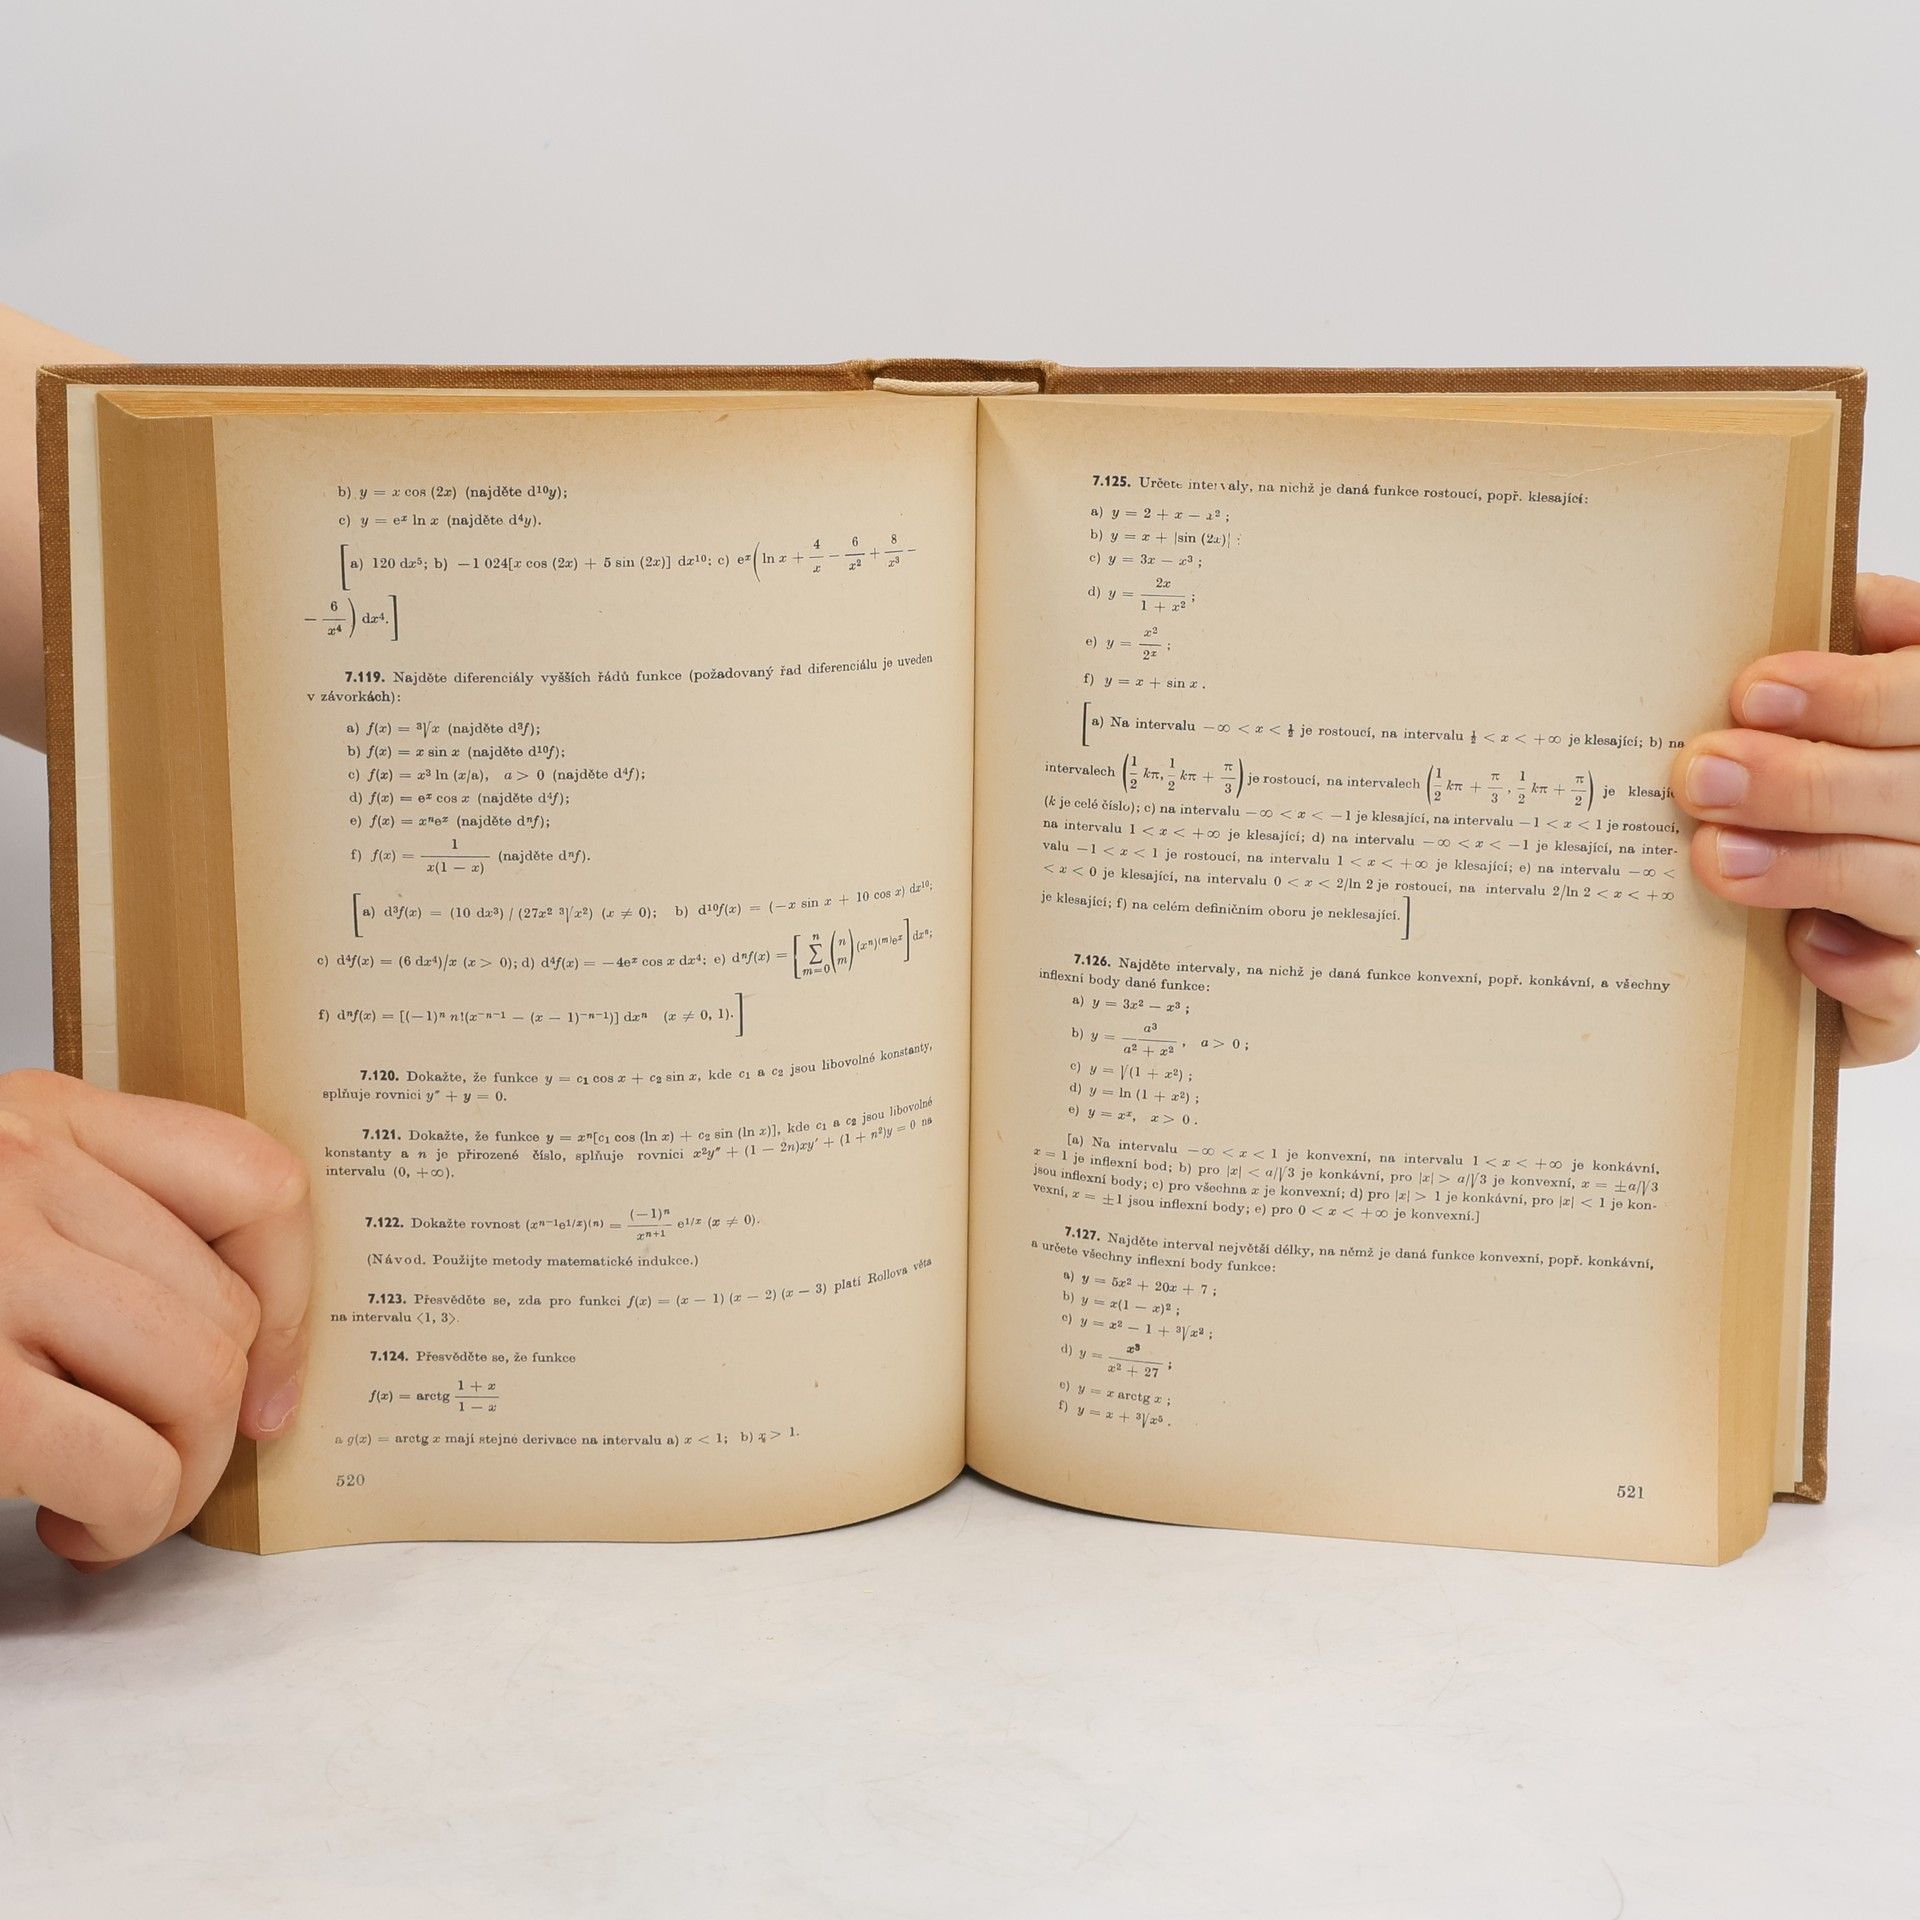 b) y = x cos (2x) (najděte d¹⁰y);
c) y = eˣ ln x (najděte d⁴y).
[a) 120 dx⁵; b) −1 024[x cos (2x) + 5 sin (2x)] dx¹⁰; c) eˣ(ln x + 4/x − 6/x² + 8/x³ −
− 6/x⁴) dx⁴.]
7.119. Najděte diferenciály vyšších řádů funkce (požadovaný řad diferenciálu je uveden
v závorkách):
a) f(x) = ³√x (najděte d³f);
b) f(x) = x sin x (najděte d¹⁰f);
c) f(x) = x³ ln (x/a), a > 0 (najděte d⁴f);
d) f(x) = eˣ cos x (najděte d⁴f);
e) f(x) = xⁿeˣ (najděte dⁿf);
f) f(x) = 1/(x(1 − x)) (najděte dⁿf).
[a) d³f(x) = (10 dx³) / (27x² ³√x²) (x ≠ 0); b) d¹⁰f(x) = (−x sin x + 10 cos x) dx¹⁰;
c) d⁴f(x) = (6 dx⁴)/x (x > 0); d) d⁴f(x) = −4eˣ cos x dx⁴; e) dⁿf(x) = [∑ₘ₌₀ⁿ (n m) (xⁿ)⁽ᵐ⁾eˣ] dxⁿ;
f) dⁿf(x) = [(−1)ⁿ n!(x⁻ⁿ⁻¹ − (x − 1)⁻ⁿ⁻¹)] dxⁿ (x ≠ 0, 1).]
7.120. Dokažte, že funkce y = c₁ cos x + c₂ sin x, kde c₁ a c₂ jsou libovolné konstanty,
splňuje rovnici y″ + y = 0.
7.121. Dokažte, že funkce y = xⁿ[c₁ cos (ln x) + c₂ sin (ln x)], kde c₁ a c₂ jsou libovolné
konstanty a n je přirozené číslo, splňuje rovnici x²y″ + (1 − 2n)xy′ + (1 + n²)y = 0 na
intervalu (0, +∞).
7.122. Dokažte rovnost (xⁿ⁻¹e¹/ˣ)⁽ⁿ⁾ = (−1)ⁿ/xⁿ⁺¹ e¹/ˣ (x ≠ 0).
(Návod. Použijte metody matematické indukce.)
7.123. Přesvěděte se, zda pro funkci f(x) = (x − 1) (x − 2) (x − 3) platí Rollova věta
na intervalu ⟨1, 3⟩.
7.124. Přesvěděte se, že funkce
f(x) = arctg (1 + x)/(1 − x)
a g(x) = arctg x mají stejné derivace na intervalu a) x < 1; b) x > 1.
520
7.125. Určete intervaly, na nichž je daná funkce rostoucí, popř. klesající:
a) y = 2 + x − x² ;
b) y = x + |sin (2x)| ;
c) y = 3x − x³ ;
d) y = 2x/(1 + x²) ;
e) y = x²/2ˣ ;
f) y = x + sin x .
[a) Na intervalu −∞ < x < ½ je rostoucí, na intervalu ½ < x < +∞ je klesající; b) na
intervalech (1/2 kπ, 1/2 kπ + π/3) je rostoucí, na intervalech (1/2 kπ + π/3, 1/2 kπ + π/2) je
(k je celé číslo); c) na intervalu −∞ < x < −1 je klesající, na intervalu −1 < x < 1 je rostoucí,
na intervalu 1 < x < +∞ je klesající; d) na intervalu −∞ < x < −1 je klesající, na inter-
valu −1 < x < 1 je rostoucí, na intervalu 1 < x < +∞ je klesající; e) na intervalu −∞ <
< x < 0 je klesající, na intervalu 0 < x < 2/ln 2 je rostoucí, na intervalu 2/ln 2 < x < +∞
je klesající; f) na celém definičním oboru je neklesající.]
7.126. Najděte intervaly, na nichž je daná funkce konvexní, popř. konkávní, a všechny
inflexní body dané funkce:
a) y = 3x² − x³ ;
b) y = a³/(a² + x²) , a > 0 ;
c) y = √(1 + x²) ;
d) y = ln (1 + x²) ;
e) y = xˣ, x > 0 .
[a) Na intervalu −∞ < x < 1 je konvexní, na intervalu 1 < x < +∞ je konkávní,
x = 1 je inflexní bod; b) pro |x| < a/√3 je konkávní, pro |x| > a/√3 je konvexní, x = ±a/√3
jsou inflexní body; c) pro všechna x je konvexní; d) pro |x| > 1 je konkávní, pro |x| < 1 je kon-
vexní, x = ±1 jsou inflexní body; e) pro 0 < x < +∞ je konvexní.]
7.127. Najděte interval největší délky, na němž je daná funkce konvexní, popř. konkávní,
a určete všechny inflexní body funkce:
a) y = 5x² + 20x + 7 ;
b) y = x(1 − x)² ;
c) y = x² − 1 + ³√x² ;
d) y = x³/(x² + 27) ;
e) y = x arctg x ;
f) y = x + ³√x⁵ .
521